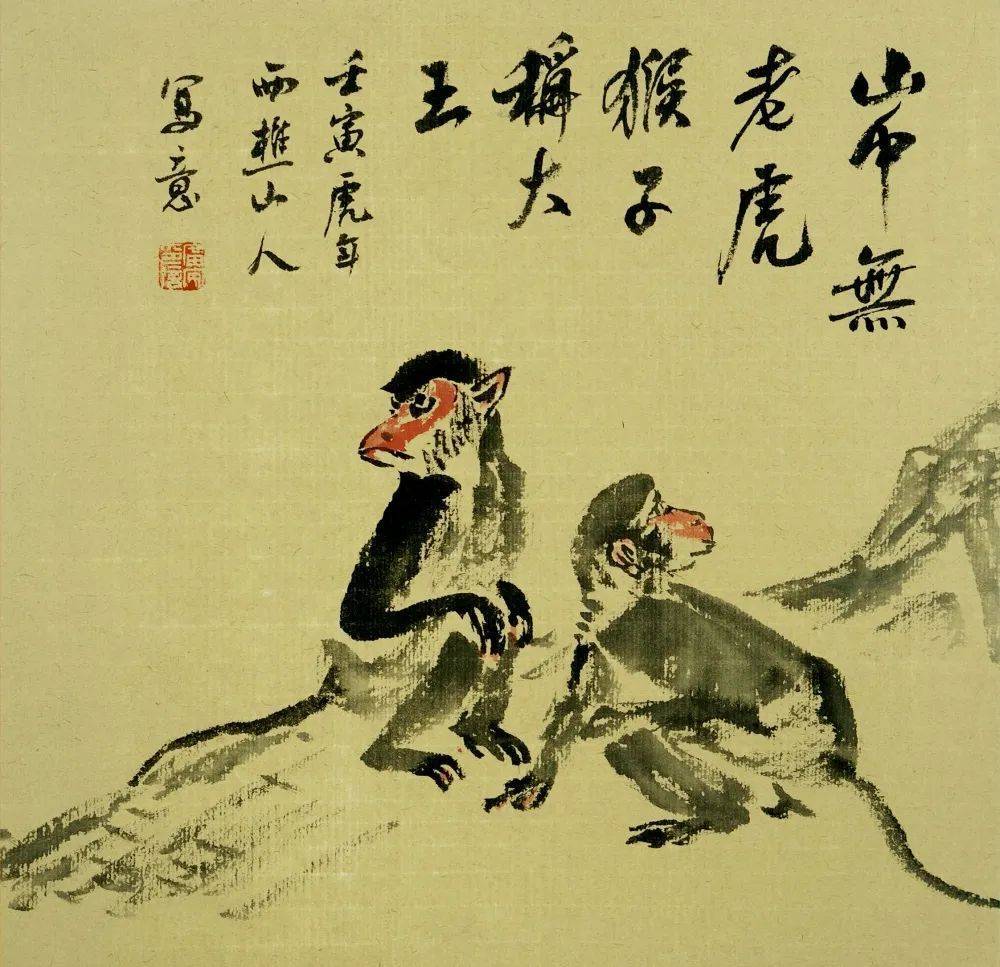 山中無
老虎
猴子
稱大
王
壬寅虎年
西樵山人
寫意